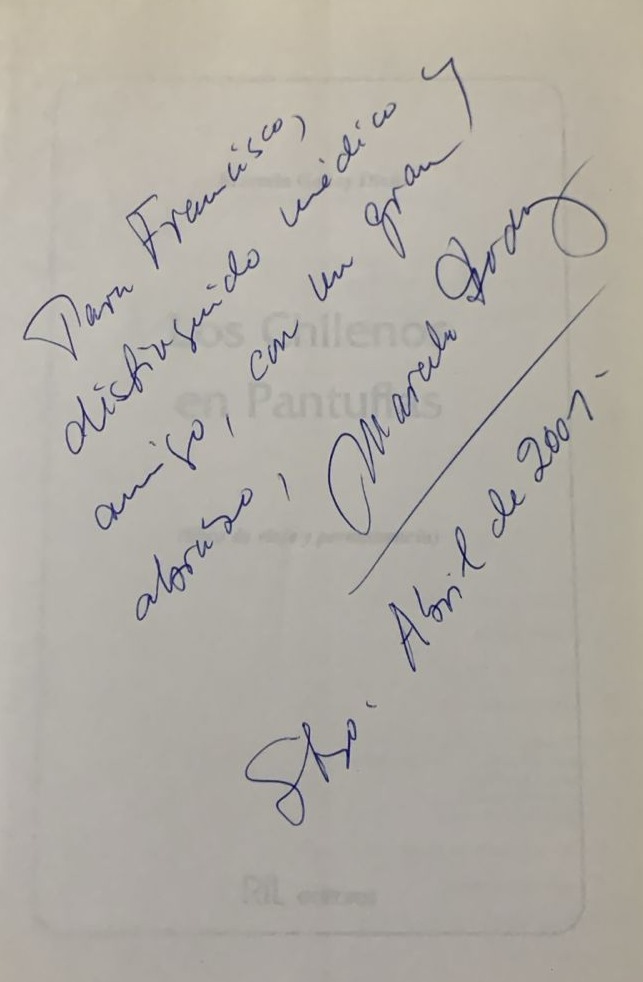 Para Francisco,
distinguido médico y
amigo, con un gran
abrazo, Marcelo
Stgo. Abril de 2001.-
Los Chilenos
en Pantuflas
RIL editores